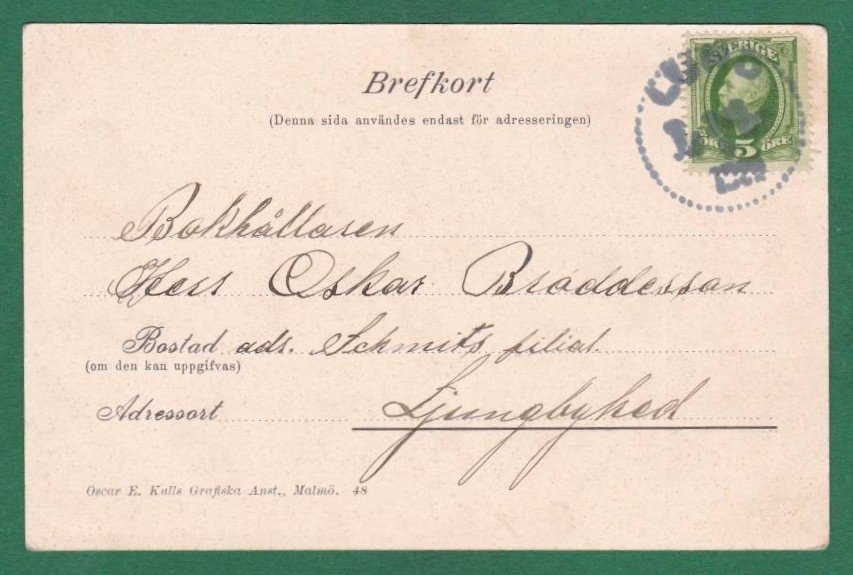 SVERIGE
5
ÖRE
Brefkort
(Denna sida användes endast för adresseringen)
Bokhållaren
Herr Oskar Broddesson
Bostad adr. Schmits filial.
(om den kan uppgifvas)
Adressort Ljungbyhed
Oscar E. Kulls Grafiska Anst., Malmö. 48